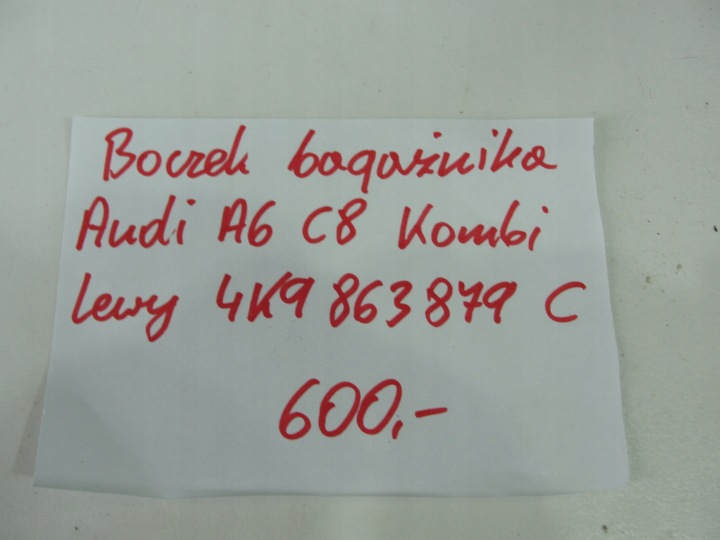 Boczek bagażnika
Audi A6 C8 Kombi
lewy 4K9 863 879 C
600,-